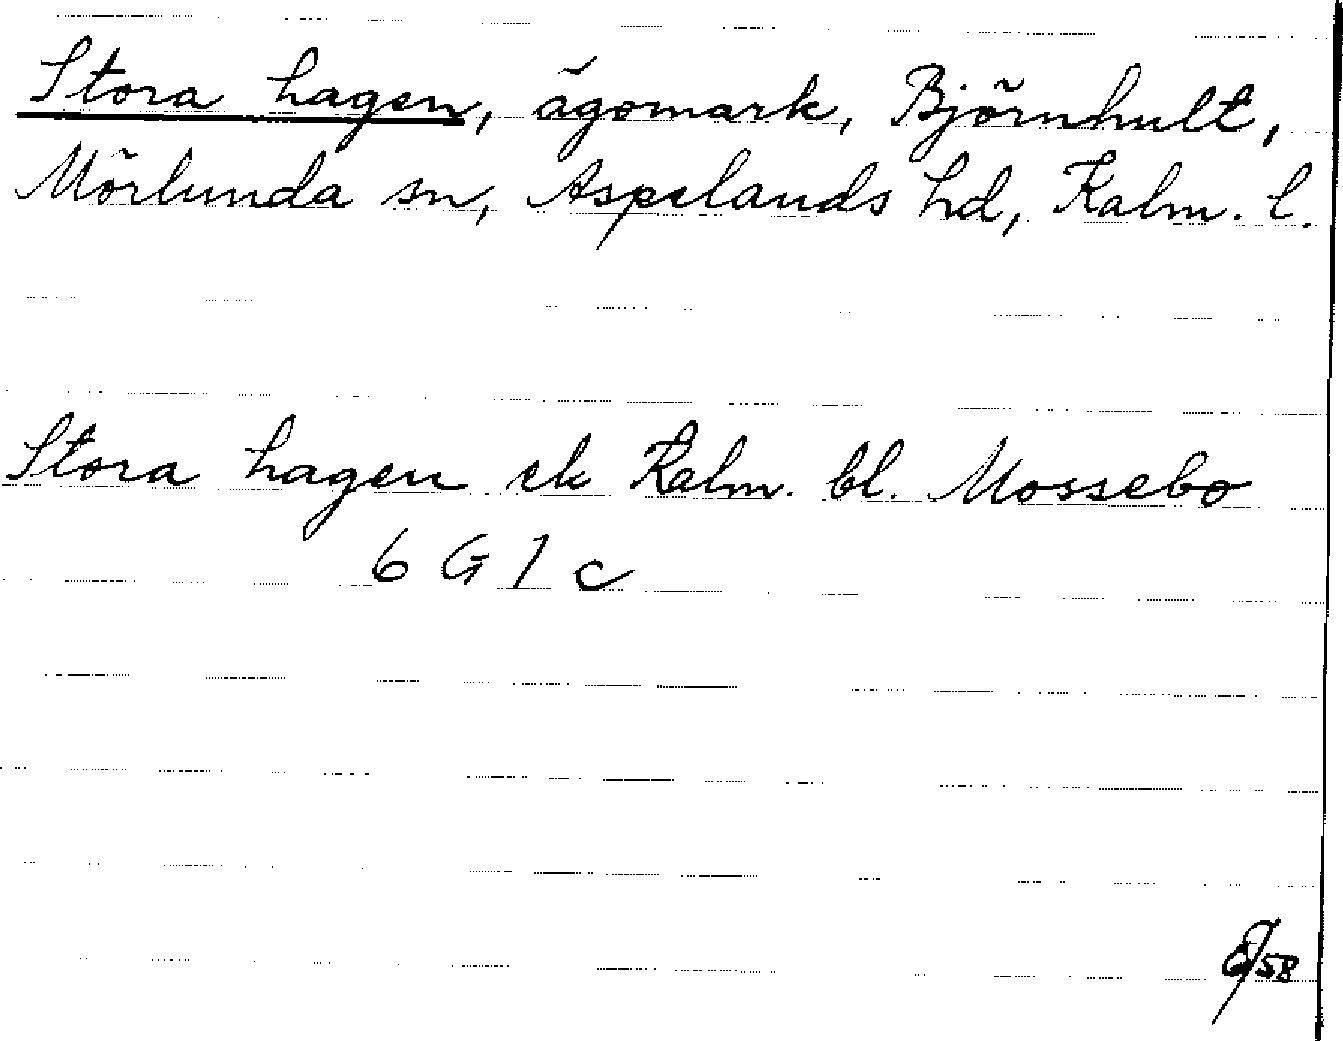 Stora hagen, ägomark, Björnhult,
Mörlunda sn, Aspelands hd, Kalm. l.
Stora hagen ek Kalm. bl. Mossebo
6 G 1 c